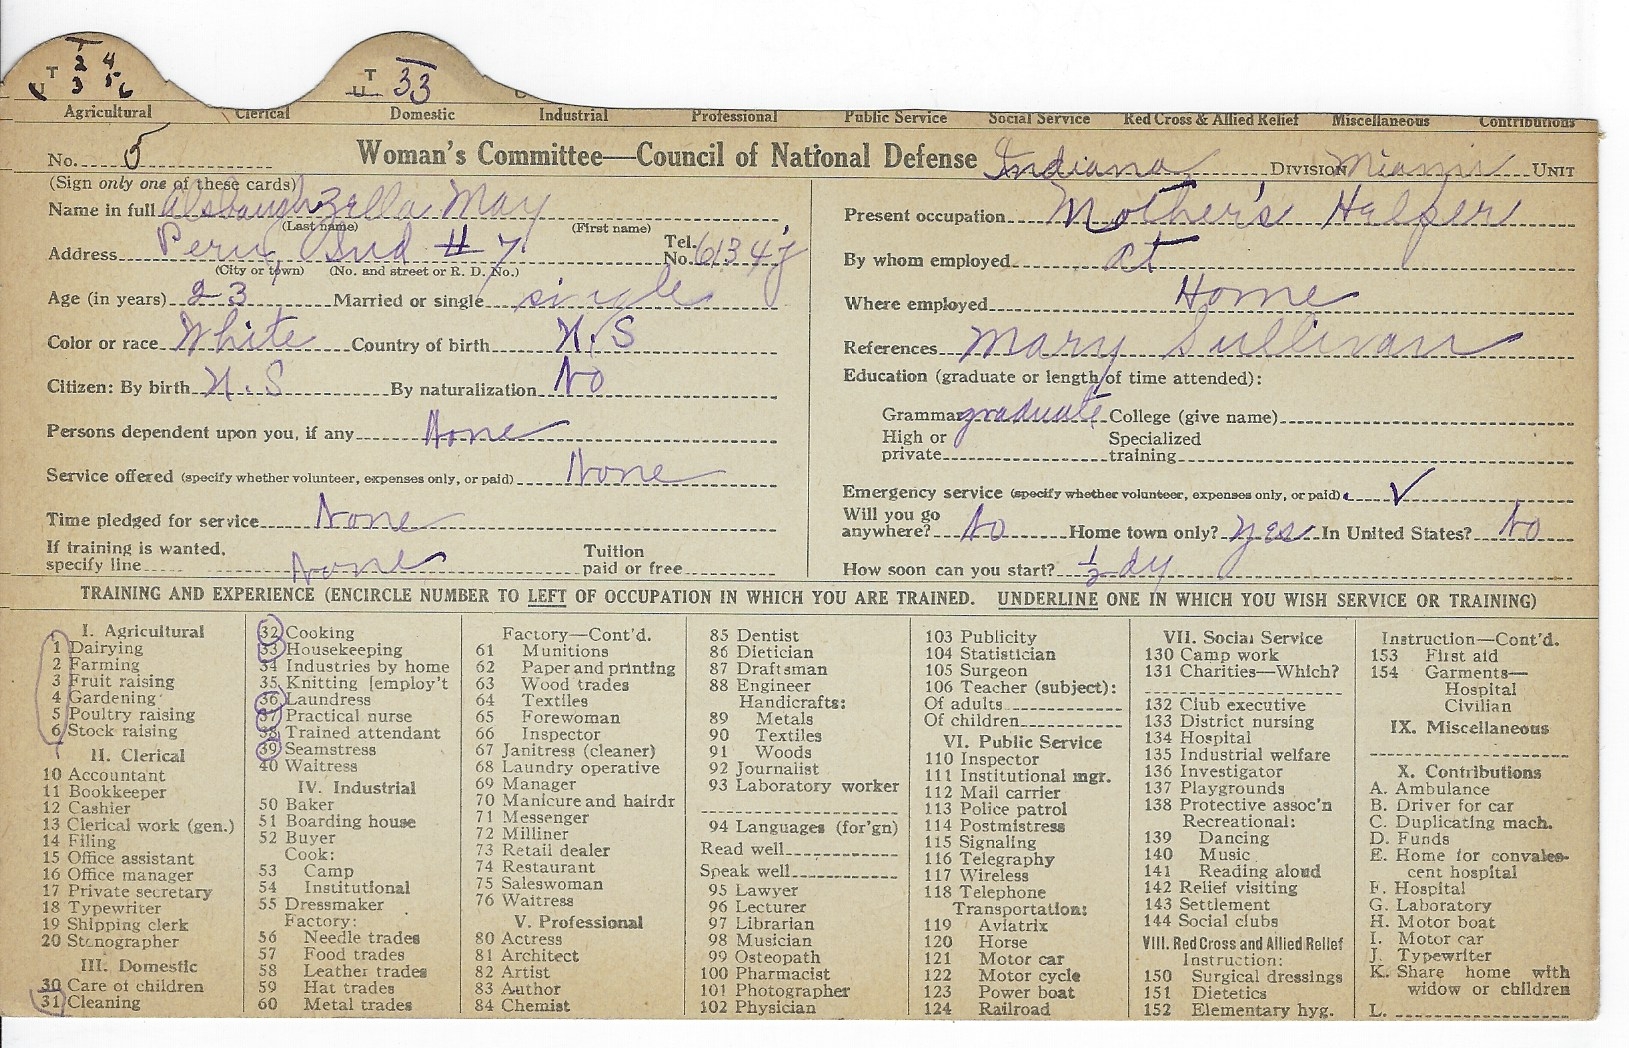 T 2 4
U 3 5 6
T 33
U
Agricultural Clerical Domestic Industrial Professional Public Service Social Service Red Cross & Allied Relief Miscellaneous Contributions
No. 5 Woman's Committee—Council of National Defense Indiana DIVISION Miami UNIT
(Sign only one of these cards)
Name in full Alsbaugh Zella May
(Last name) (First name)
Address Peru Ind # 7 Tel. No. 6134J
(City or town) (No. and street or R. D. No.)
Age (in years) 23 Married or single single
Color or race White Country of birth U.S
Citizen: By birth U.S By naturalization No
Persons dependent upon you, if any None
Service offered (specify whether volunteer, expenses only, or paid) None
Time pledged for service None
If training is wanted, specify line None Tuition paid or free
Present occupation Mother's Helper
By whom employed at
Where employed Home
References Mary Sullivan
Education (graduate or length of time attended):
Grammar graduate College (give name)
High or private Specialized training
Emergency service (specify whether volunteer, expenses only, or paid) ✓
Will you go anywhere? No Home town only? yes In United States? No
How soon can you start? ½ dy
TRAINING AND EXPERIENCE (ENCIRCLE NUMBER TO LEFT OF OCCUPATION IN WHICH YOU ARE TRAINED. UNDERLINE ONE IN WHICH YOU WISH SERVICE OR TRAINING)
I. Agricultural
1 Dairying
2 Farming
3 Fruit raising
4 Gardening
5 Poultry raising
6 Stock raising
II. Clerical
10 Accountant
11 Bookkeeper
12 Cashier
13 Clerical work (gen.)
14 Filing
15 Office assistant
16 Office manager
17 Private secretary
18 Typewriter
19 Shipping clerk
20 Stenographer
III. Domestic
30 Care of children
31 Cleaning
32 Cooking
33 Housekeeping
34 Industries by home
35 Knitting [employ't
36 Laundress
37 Practical nurse
38 Trained attendant
39 Seamstress
40 Waitress
IV. Industrial
50 Baker
51 Boarding house
52 Buyer
Cook:
53 Camp
54 Institutional
55 Dressmaker
Factory:
56 Needle trades
57 Food trades
58 Leather trades
59 Hat trades
60 Metal trades
Factory—Cont'd.
61 Munitions
62 Paper and printing
63 Wood trades
64 Textiles
65 Forewoman
66 Inspector
67 Janitress (cleaner)
68 Laundry operative
69 Manager
70 Manicure and hairdr
71 Messenger
72 Milliner
73 Retail dealer
74 Restaurant
75 Saleswoman
76 Waitress
V. Professional
80 Actress
81 Architect
82 Artist
83 Author
84 Chemist
85 Dentist
86 Dietician
87 Draftsman
88 Engineer
Handicrafts:
89 Metals
90 Textiles
91 Woods
92 Journalist
93 Laboratory worker
94 Languages (for'gn)
Read well
Speak well
95 Lawyer
96 Lecturer
97 Librarian
98 Musician
99 Osteopath
100 Pharmacist
101 Photographer
102 Physician
103 Publicity
104 Statistician
105 Surgeon
106 Teacher (subject):
Of adults
Of children
VI. Public Service
110 Inspector
111 Institutional mgr.
112 Mail carrier
113 Police patrol
114 Postmistress
115 Signaling
116 Telegraphy
117 Wireless
118 Telephone
Transportation:
119 Aviatrix
120 Horse
121 Motor car
122 Motor cycle
123 Power boat
124 Railroad
VII. Social Service
130 Camp work
131 Charities—Which?
132 Club executive
133 District nursing
134 Hospital
135 Industrial welfare
136 Investigator
137 Playgrounds
138 Protective assoc'n
Recreational:
139 Dancing
140 Music
141 Reading aloud
142 Relief visiting
143 Settlement
144 Social clubs
VIII. Red Cross and Allied Relief
Instruction:
150 Surgical dressings
151 Dietetics
152 Elementary hyg.
Instruction—Cont'd.
153 First aid
154 Garments—
Hospital
Civilian
IX. Miscellaneous
X. Contributions
A. Ambulance
B. Driver for car
C. Duplicating mach.
D. Funds
E. Home for convales-
cent hospital
F. Hospital
G. Laboratory
H. Motor boat
I. Motor car
J. Typewriter
K. Share home with
widow or children
L.